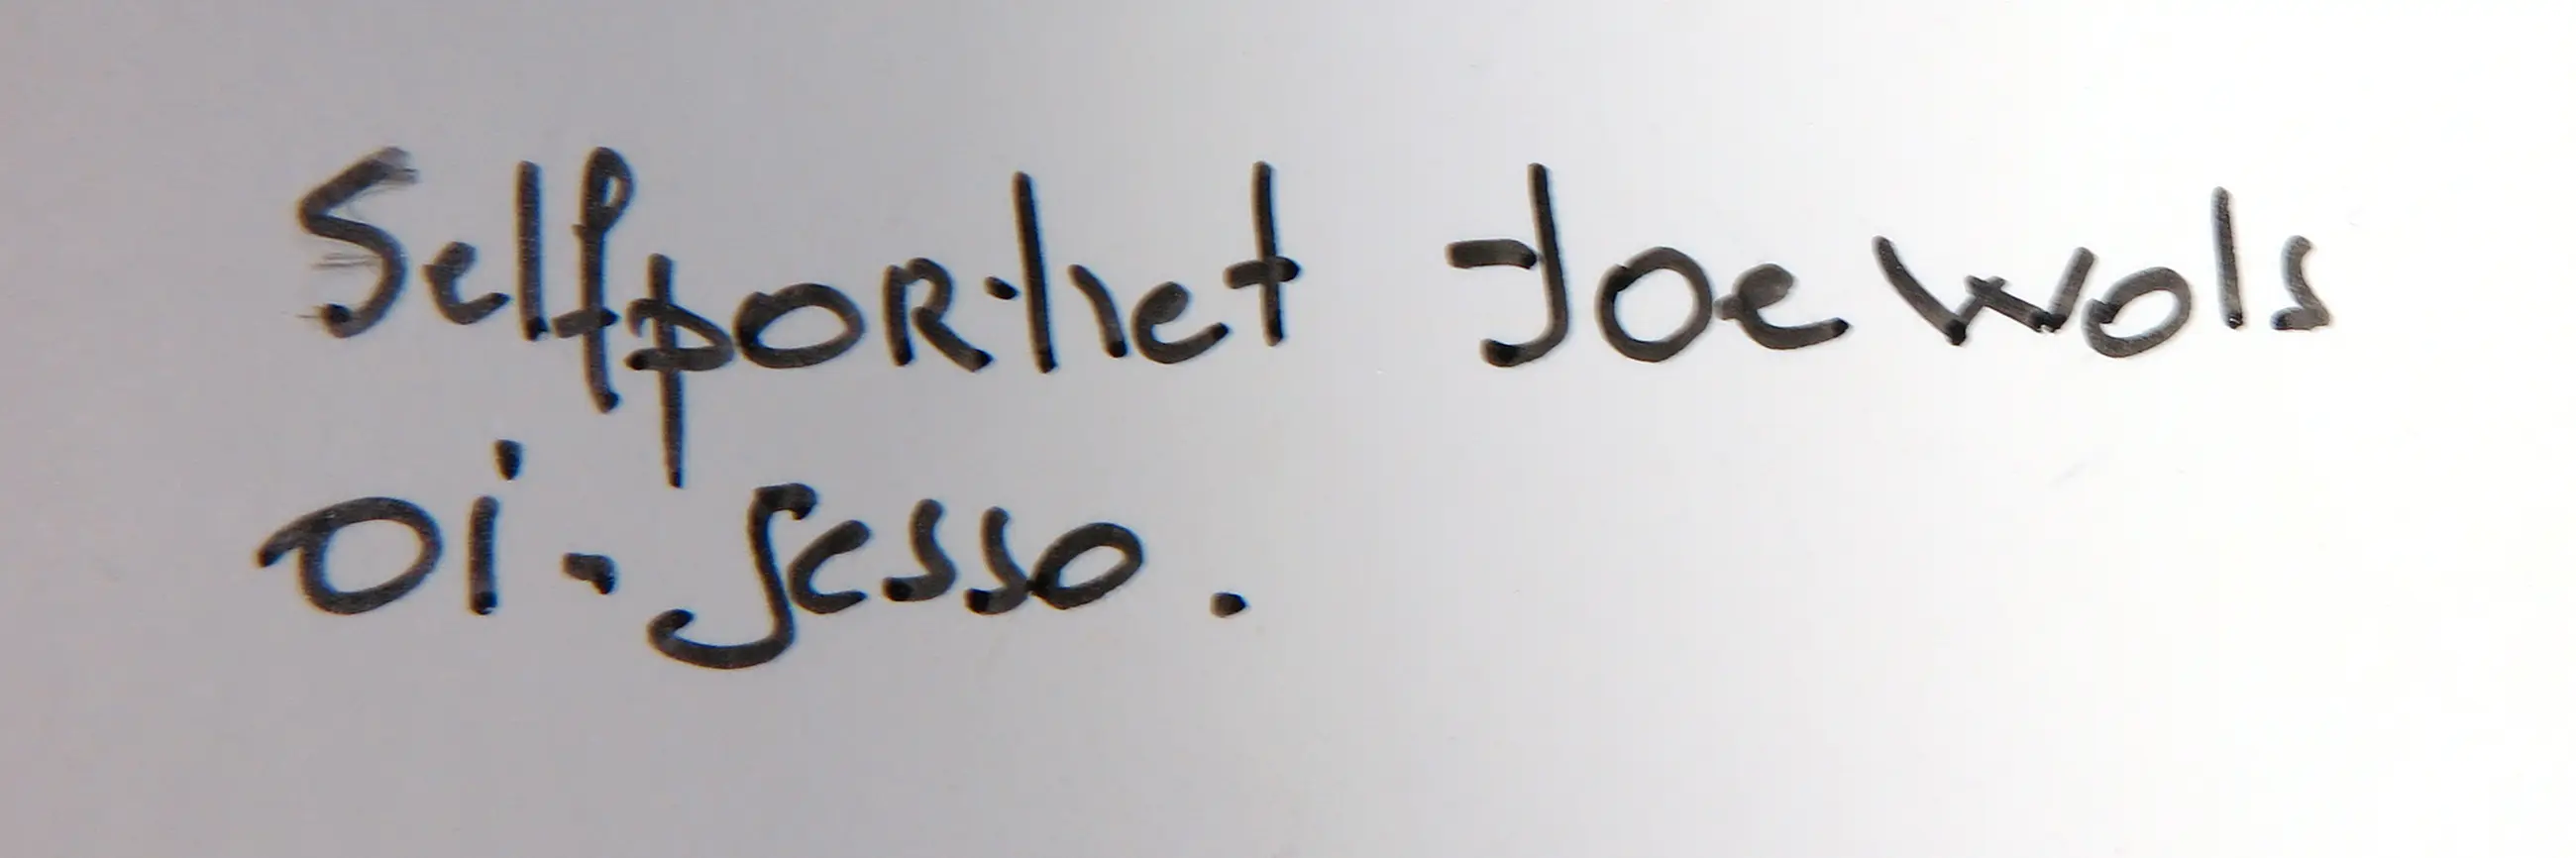 Selfportret Joe Wols
oi. gesso.